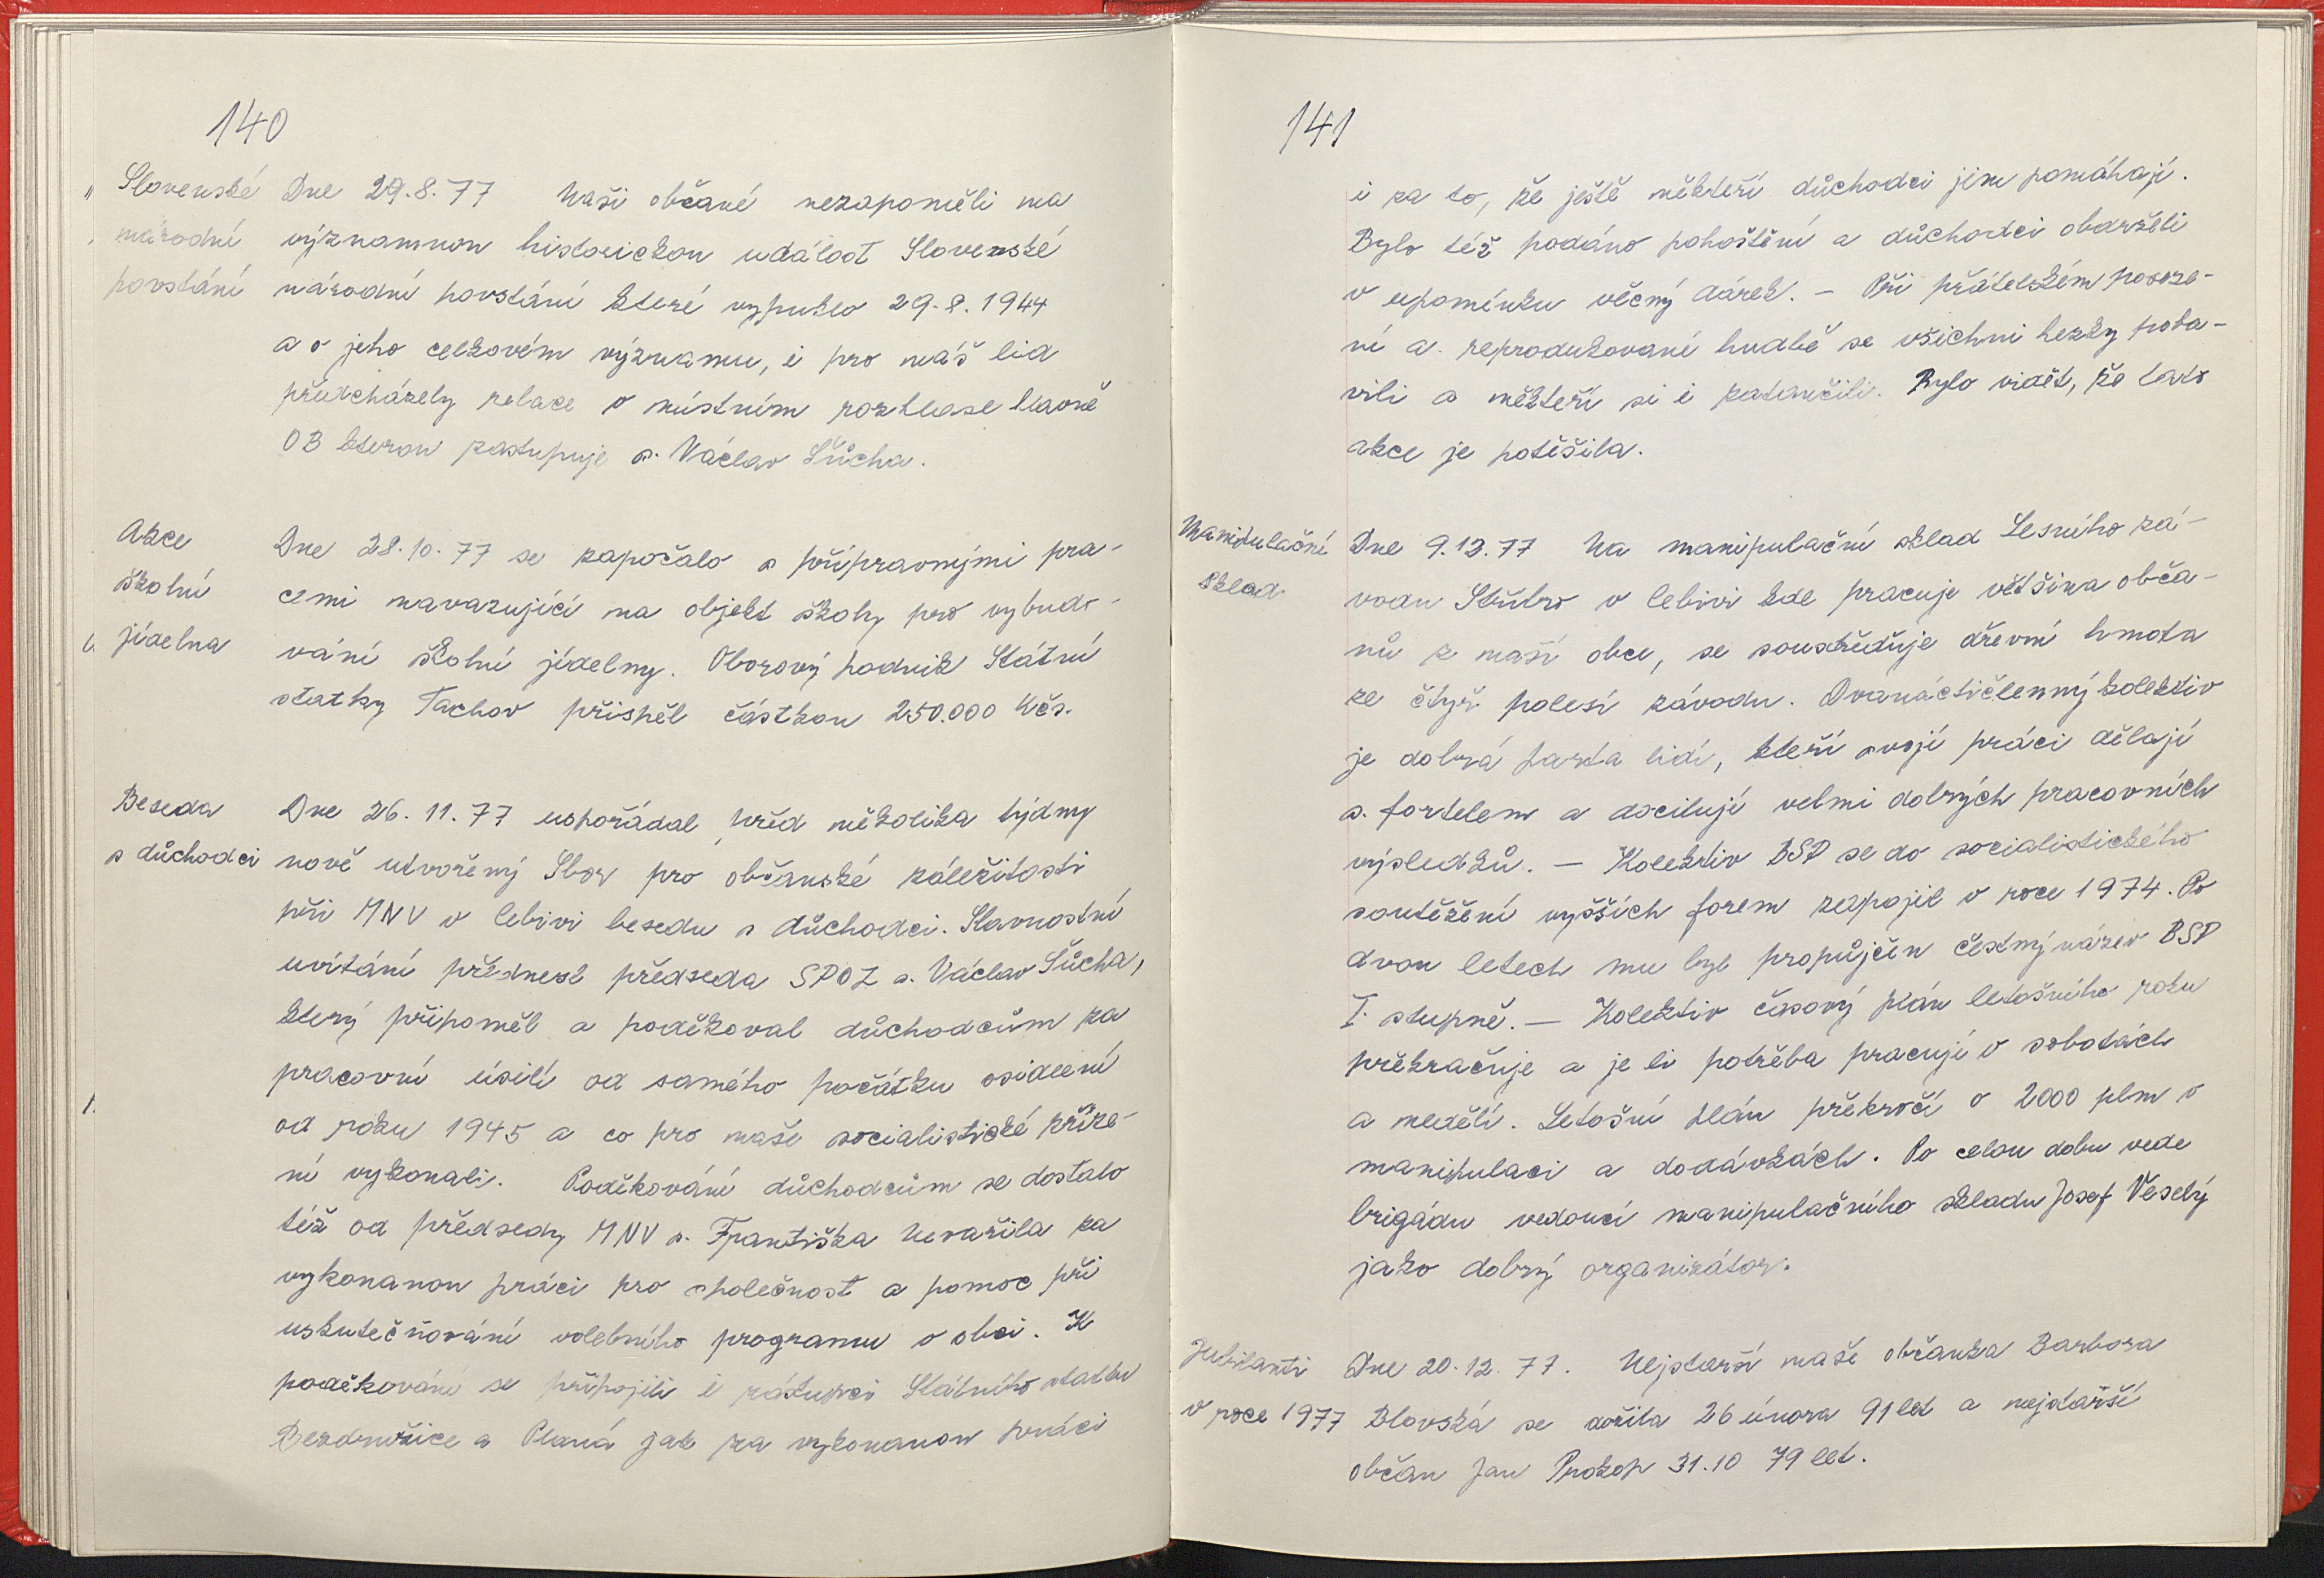 140
Slovenské
národní
povstání
Dne 29.8.77 Naši občané nezapoměli na
významnou historickou událost Slovenské
národní povstání které vypuklo 29.8.1944
a o jeho celkovém významu, i pro náš lid
předcházely relace v místním rozhlase hlavně
OB kterou zastupuje s. Václav Sůcha.
Akce
školní
jídelna
Dne 28.10.77 se započalo s přípravnými pra-
cemi navazující na objekt školy pro vybudo-
vání školní jídelny. Oborový podnik Státní
statky Tachov přispěl částkou 250.000 Kčs.
Beseda
s důchodci
Dne 26.11.77 uspořádal před několika týdny
nově utvořený Sbor pro občanské záležitosti
při MNV v Lebivi besedu s důchodci. Slavnostní
uvítání přednesl předseda SPOZ s. Václav Sůcha,
který připoměl a poděkoval důchodcům za
pracovní úsilí od samého počátku osidlení
od roku 1945 a co pro naše socialistické zříze-
ní vykonali. Poděkování důchodcům se dostalo
též od předsedy MNV s. Františka Nevařila za
vykonanou práci pro společnost a pomoc při
uskutečňování volebního programu v obci. K
poděkování se připojili i zástupci Státního statku
Bezdružice a Planá jak za vykonanou práci
141
i za to, že ještě někteří důchodci jim pomáhají.
Bylo též podáno pohoštění a důchodci obdrželi
v upomínku věcný dárek. — Při přátelském poseze-
ní a reprodukované hudbě se všichni hezky poba-
vili a někteří si i zatančili. Bylo vidět, že tato
akce je potěšila.
Manipulační
sklad
Dne 9.12.77 Na manipulační sklad Lesního zá-
vodu Stříbro v Lebivi kde pracuje většina obča-
nů z naší obce, se soustřeďuje dřevní hmota
ze čtyř polesí závodu. Dvanáctičlenný kolektiv
je dobrá parta lidí, kteří svojí práci dělají
s. fortelem a docilují velmi dobrých pracovních
výsledků. — Kolektiv BSP se do socialistického
soutěžení vyšších forem zapojil v roce 1974. Po
dvou letech mu byl propůjčen čestný název BSP
I. stupně. — Kolektiv časový plán letošního roku
překračuje a je li potřeba pracují v sobotách
a neděli. Letošní plán překročí o 2000 plm v
manipulaci a dodávkách. Po celou dobu vede
brigádu vedoucí manipulačního skladu Josef Veselý
jako dobrý organizátor.
Jubilanti
v roce 1977
Dne 20.12.77. Nejstarší naše občanka Barbora
Blovská se dožila 26 února 91 let a nejstarší
občan Jan Prokop 31.10 79 let.